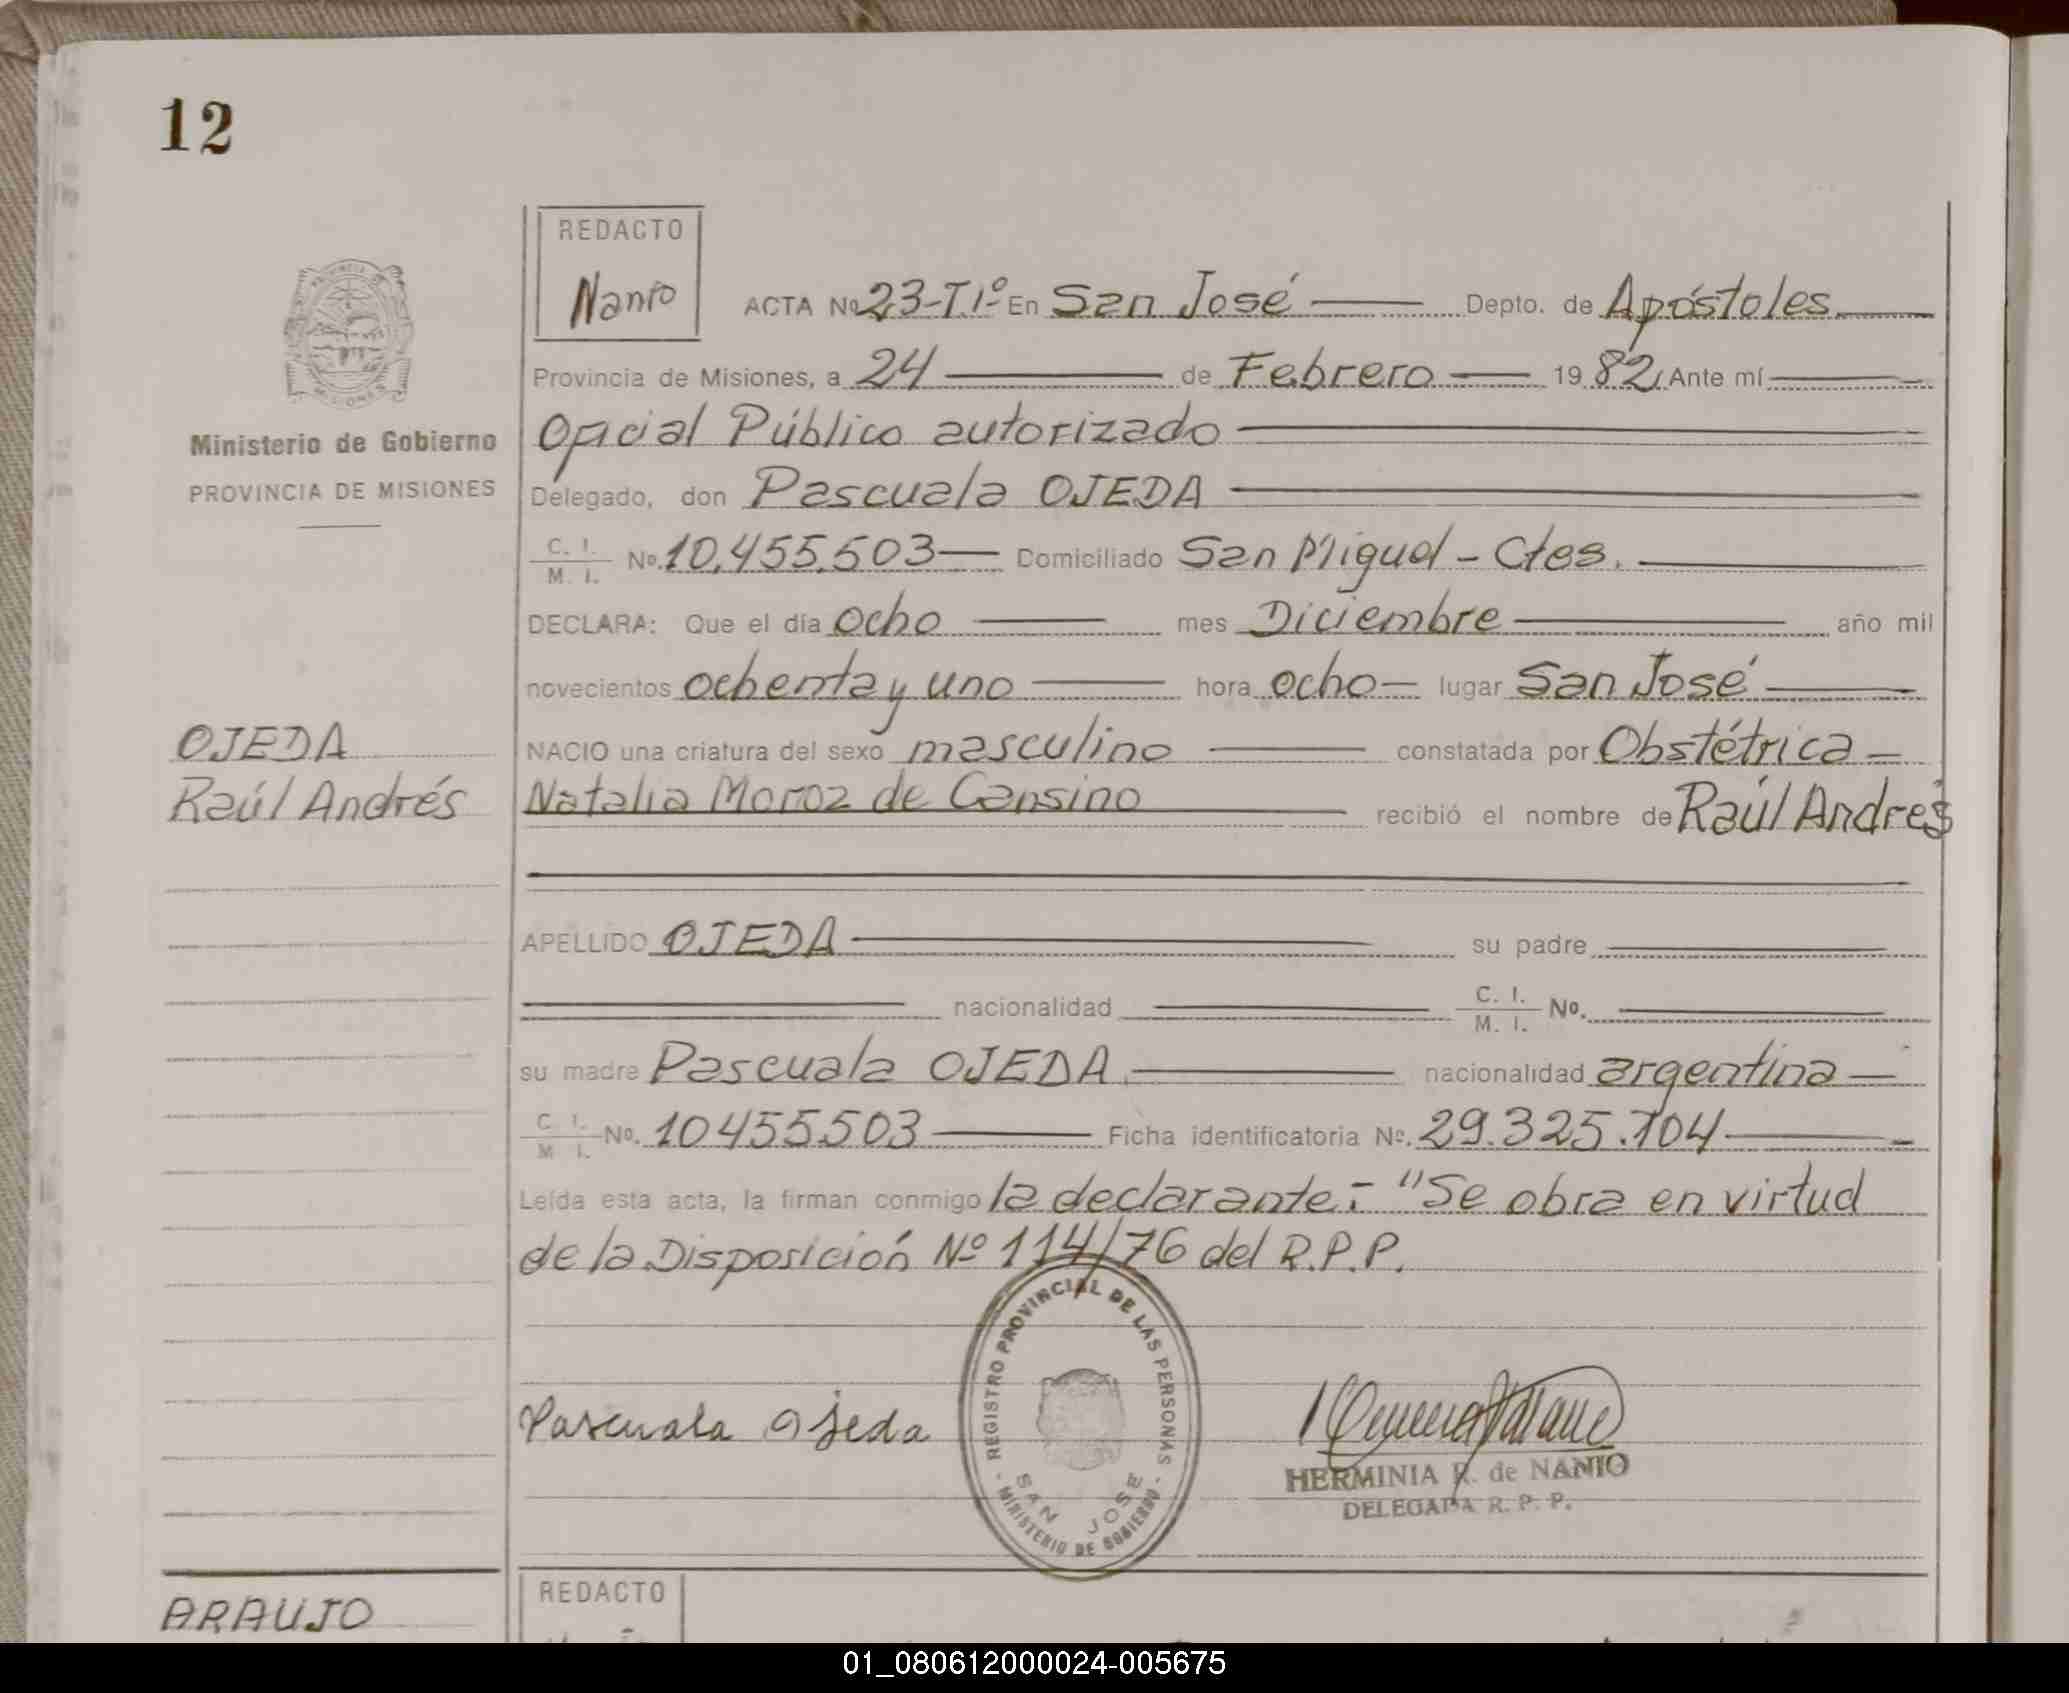 12
REDACTO
Nanio
ACTA Nº 23-T.1º En San José Depto. de Apóstoles
Provincia de Misiones, a 24 de Febrero 1982, Ante mí
Oficial Público autorizado
Ministerio de Gobierno
PROVINCIA DE MISIONES
Delegado, don Pascuala OJEDA
C. I. M. I. No. 10.455.503 Domiciliado San Miguel - Ctes.
DECLARA: Que el día ocho mes Diciembre año mil
novecientos ochenta y uno hora ocho lugar San José
OJEDA
Raúl Andrés
NACIO una criatura del sexo masculino constatada por Obstétrica
Natalia Moroz de Cansino recibió el nombre de Raúl Andrés
APELLIDO OJEDA su padre
nacionalidad C. I. M. I. No.
su madre Pascuala OJEDA nacionalidad argentina
C. I. M. I. No. 10455503 Ficha identificatoria Nº. 29.325.104
Leída esta acta, la firman conmigo la declarante.- "Se obra en virtud
de la Disposición Nº 114/76 del R.P.P.
REGISTRO PROVINCIAL DE LAS PERSONAS
SAN JOSE
MINISTERIO DE GOBIERNO
Pascuala Ojeda
HERMINIA R. de NANIO
DELEGADA R. P. P.
ARAUJO
REDACTO
01_080612000024-005675